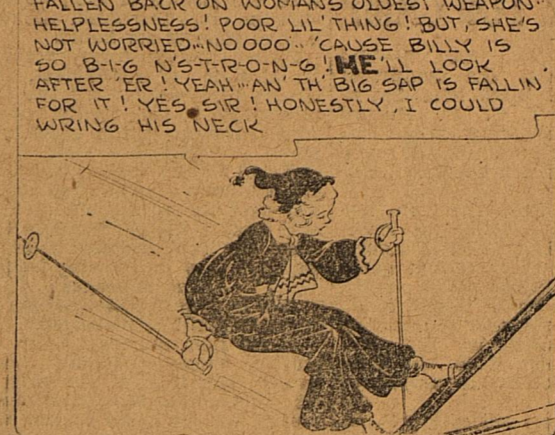 FALLEN BACK ON WOMAN'S OLDEST WEAPON--
HELPLESSNESS! POOR LIL' THING! BUT, SHE'S
NOT WORRIED...NOOOO.. 'CAUSE BILLY IS
SO B-I-G N'S-T-R-O-N-G! HE'LL LOOK
AFTER 'ER! YEAH...AN' TH' BIG SAP IS FALLIN'
FOR IT! YES, SIR! HONESTLY, I COULD
WRING HIS NECK